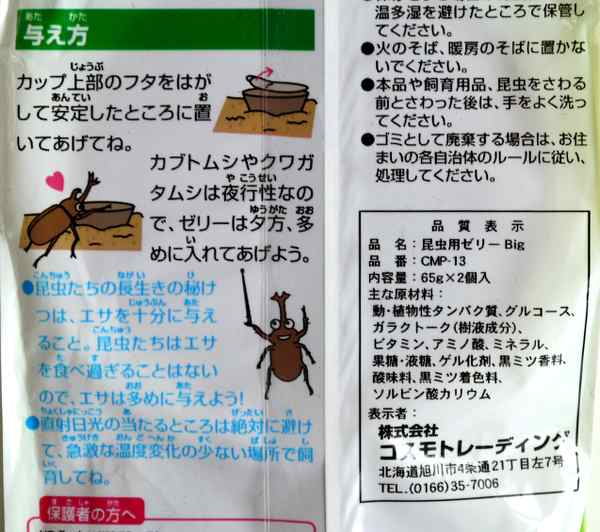 与え方
カップ上部のフタをはが
して安定したところに置
いてあげてね。
カブトムシやクワガ
タムシは夜行性なの
で、ゼリーは夕方、多
めに入れてあげよう。
●昆虫たちの長生きの秘け
つは、エサを十分に与え
ること。昆虫たちはエサ
を食べ過ぎることはない
ので、エサは多めに与えよう!
●直射日光の当たるところは絶対に避け
て、急激な温度変化の少ない場所で飼
育してね。
保護者の方へ
温多湿を避けたところで保管し
てください。
●火のそば、暖房のそばに置かな
いでください。
●本品や飼育用品、昆虫をさわる
前とさわった後は、手をよく洗っ
てください。
●ゴミとして廃棄する場合は、お住
まいの各自治体のルールに従い、
処理してください。
品質表示
品名:昆虫用ゼリー Big
品番:CMP-13
内容量:65g×2個入
主な原材料:
動・植物性タンパク質、グルコース、
ガラクトーク(樹液成分)、
ビタミン、アミノ酸、ミネラル、
果糖・液糖、ゲル化剤、黒ミツ香料、
酸味料、黒ミツ着色料、
ソルビン酸カリウム
表示者:
株式会社
コスモトレーディング
北海道旭川市4条通21丁目左7号
TEL.(0166)35-7006